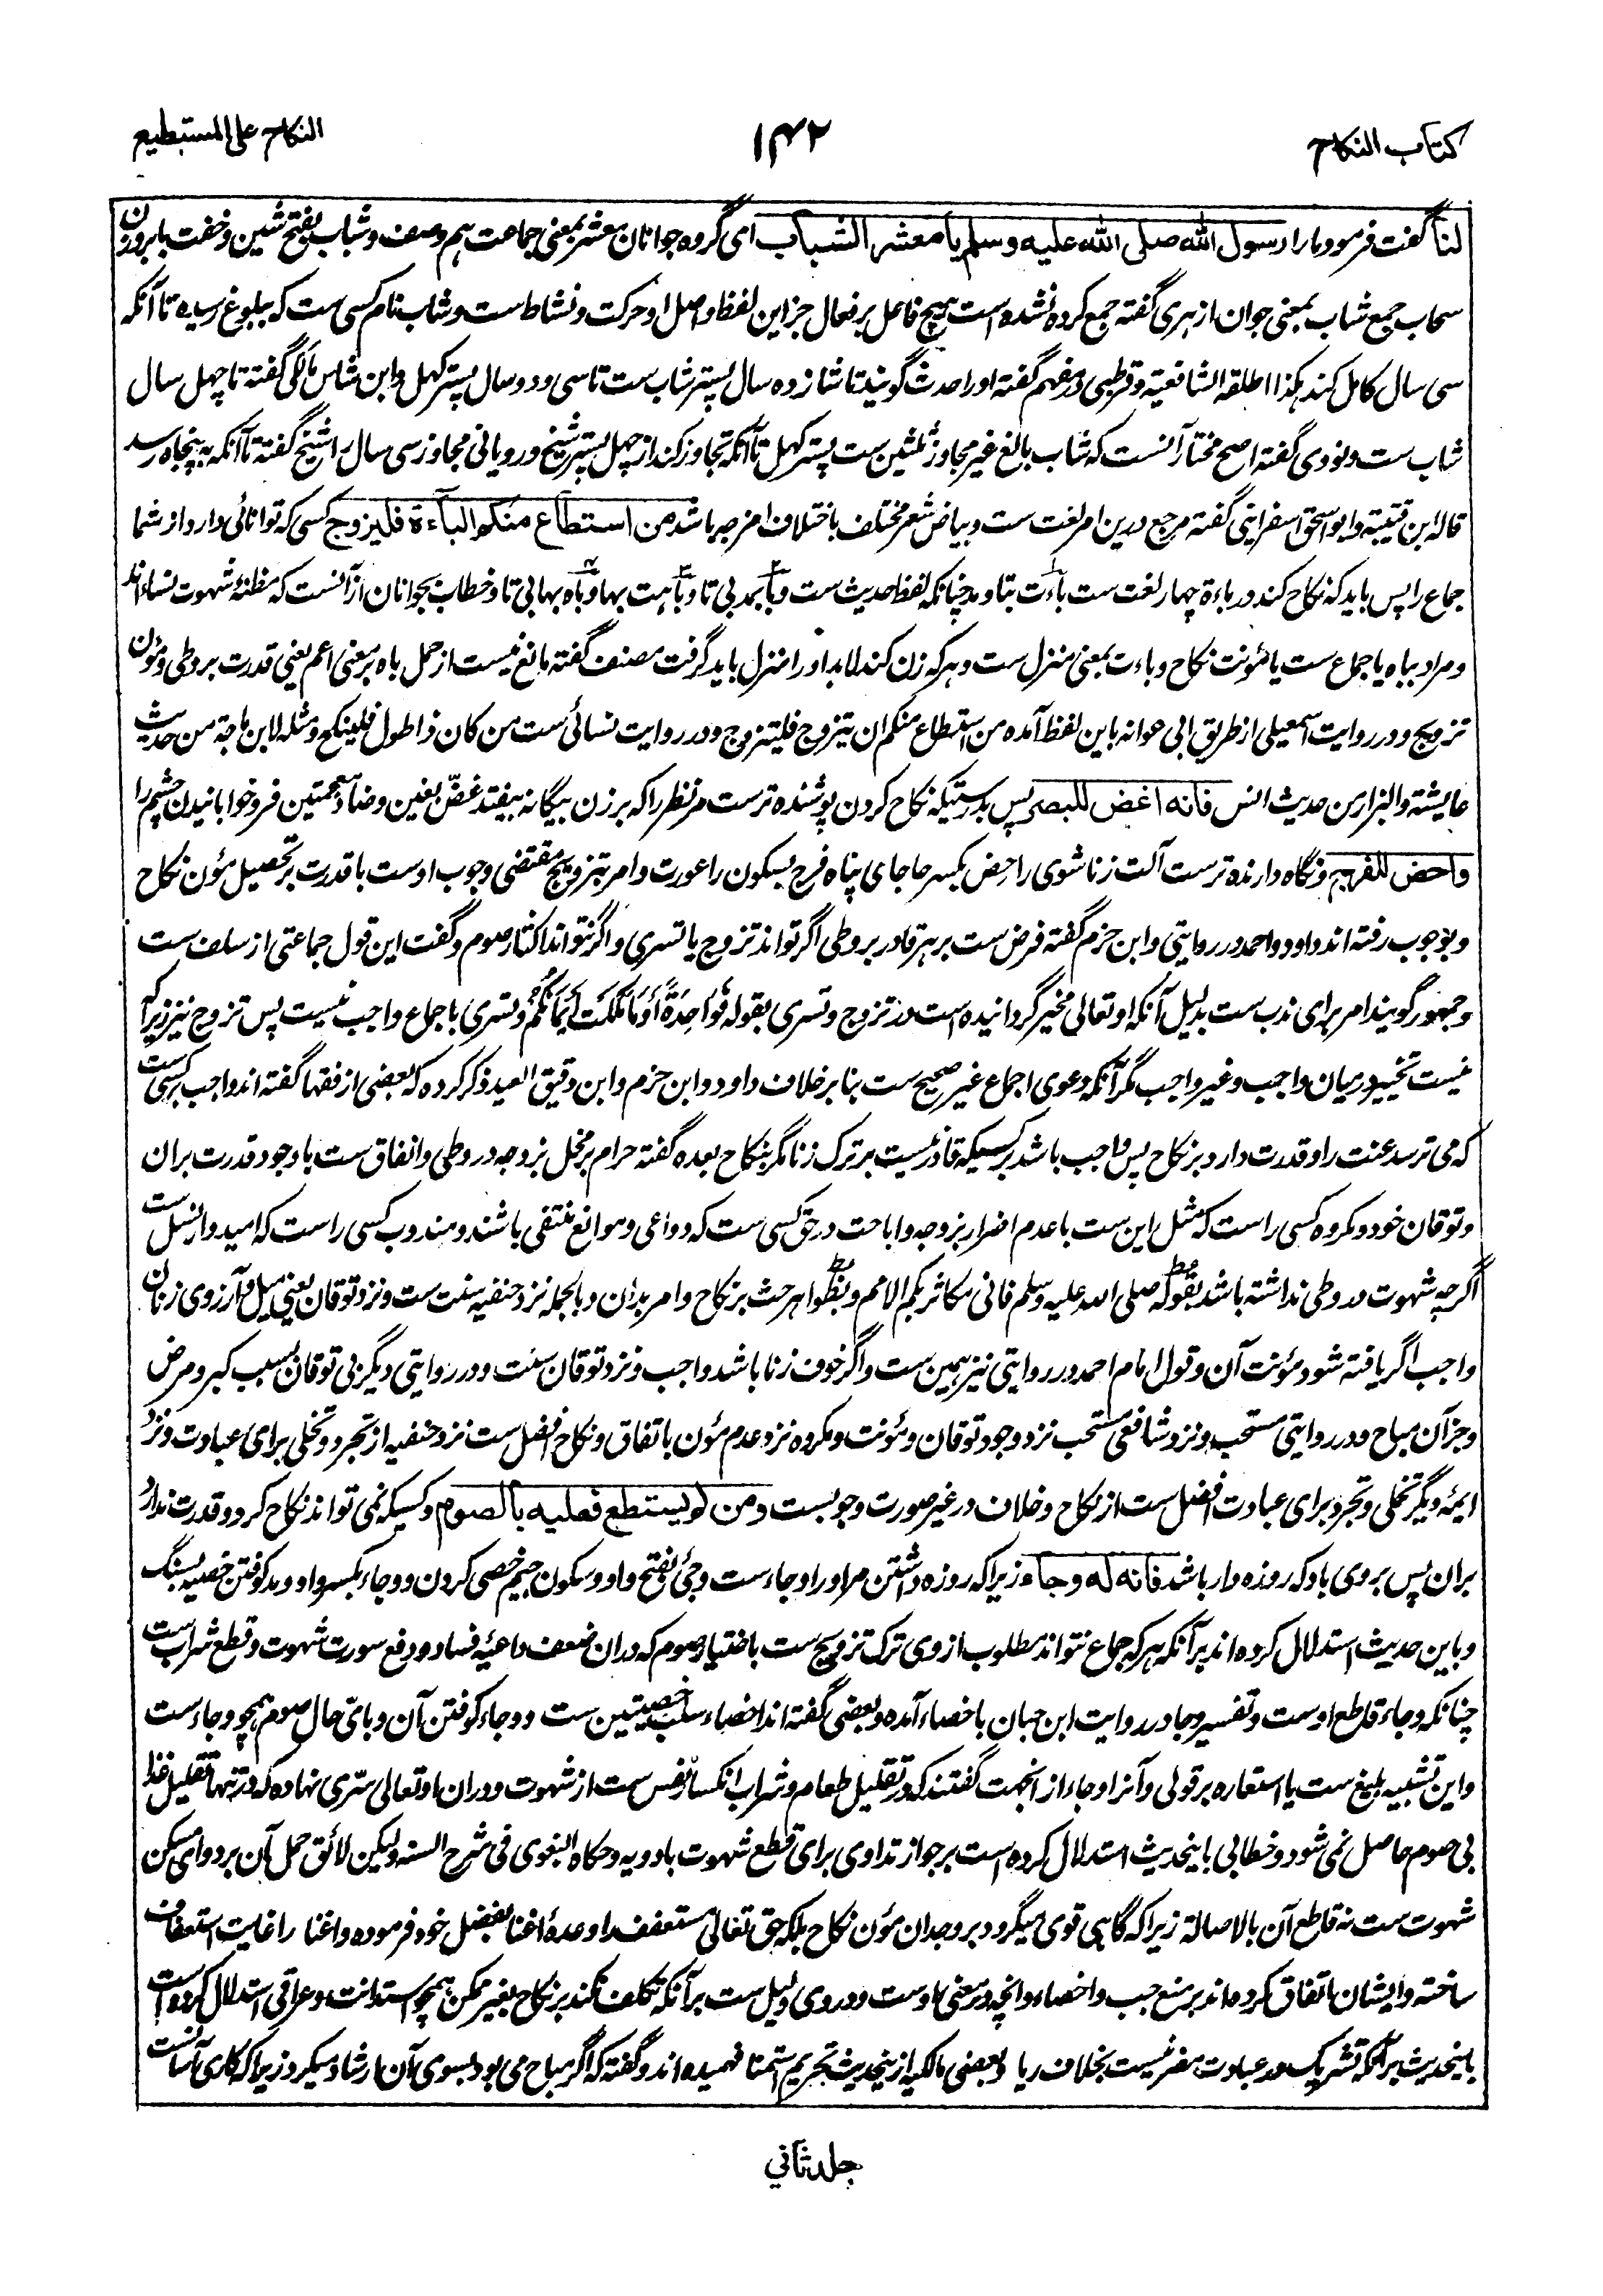 كتاب النكاح
۱۴۲
النكاح على المستطيع
لنا گفت فرمود ما را رسول الله صلى الله عليه وسلم يا معشر الشباب ای گروه جوانان معشر بمعنی جماعت هم وصف و شباب بفتح شین و خفت با بروزن
سحاب جمع شاب بمعنی جوان ازهری گفته جمع کرده نشده است هیچ فاعل بر فعال جز این لفظ و اصل او حرکت و نشاط ست و شاب نام کسی ست که ببلوغ رسیده تا آنکه
سی سال کامل کند هکذا اطلقه الشافعیة و قرطبی در مفهم گفته او را حدث گویند تا شانزده سال پستر شاب ست تا سی و دو سال پستر کهل و ابن شاس مالکی گفته تا چهل سال
شاب ست و نووی گفته اصح مختار آنست که شاب بالغ غیر مجاوز ثلثین ست پستر کهل تا آنکه تجاوز کند از چهل پستر شیخ و رویانی مجاوز سی سال را شیخ گفته تا آنکه به پنجاه رسد
قاله ابن قتیبة و ابو اسحق اسفراینی گفته مرجع درین امر لغت ست و بیاض شعر مختلف باختلاف امزجه باشد من استطاع منكم الباءة فليزوج کسی که توانائی دارد از شما
جماع را پس باید که نکاح کند و در باءة چهار لغت ست باءت بتا و مد چنانکه لفظ حدیث ست و با بمد بی تا و باهت بها و باه بهابی تا و خطاب بجوانان از آنست که مظنهٔ شهوت نساء اند
و مراد بباه یا جماع ست یا مؤنت نکاح و باءت بمعنی منزل ست و هر که زن کند لابد او را منزل باید گرفت مصنف گفته مانع نیست از حمل باه بر معنی اعم یعنی قدرت بر وطی و مؤن
تزویج و در روایت اسمعیلی از طریق ابی عوانه باین لفظ آمده من استطاع منکم ان یتزوج فلیتزوج و در روایت نسائی ست من کان ذا طول فلینکح و مثله لابن ماجة من حدیث
عایشة والبزار من حدیث انس فانه اغض للبصر پس بدرستیکه نکاح کردن پوشنده ترست مر نظر را که بر زن بیگانه بیفتد غضّ بغین و ضاد معجمتین فرو خوابانیدن چشم را
واحض للفرج و نگاه دارنده ترست آلت زناشوی را حِض بکسر حا جای پناه فرج بسکون را عورت و امر بتزویج مقتضی وجوب اوست با قدرت بر تحصیل مؤن نکاح
و بوجوب رفته اند داود و احمد در روایتی و ابن حزم گفته فرض ست بر هر قادر بر وطی اگر تواند تزوج یا تسری و اگر نتواند اکثار صوم و گفت این قول جماعتی از سلف ست
و جمهور گویند امر برای ندب ست بدلیل آنکه او تعالی مخیر گردانیده است در تزوج و تسری بقوله فَوَاحِدَةً أَوْ مَا مَلَكَتْ أَيْمَانُكُمْ و تسری باجماع واجب نیست پس تزوج نیز زیراکه
نیست تخییر درمیان واجب و غیر واجب مگر آنکه دعوی اجماع غیر صحیح ست بنا بر خلاف داود و ابن حزم و ابن دقیق العید ذکر کرده که بعضی از فقها گفته اند واجب بر کسی ست
که می ترسد عنت را و قدرت دارد بر نکاح پس واجب باشد بر کسیکه قادر نیست بر ترک زنا مگر بنکاح بعده گفته حرام بر مخل بزوجه در وطی و انفاق ست با وجود قدرت بران
و توقان خود و مکروه کسی راست که مثل این ست با عدم اضرار بزوجه و اباحت در حق کسی ست که دواعی و موانع منتفی باشند و مندوب کسی راست که امیدوار نسل ست
اگرچه شهوت در وطی نداشته باشد بقوله صلی الله علیه وسلم فانی مکاثر بکم الامم و بظواهر حث بر نکاح و امر بدان و بالجمله نزد حنفیه سنت ست و نزد توقان یعنی میل و آرزوی زنان
واجب اگر یافته شود مؤنت آن و قول امام احمد در روایتی نیز همین ست و اگر خوف زنا باشد واجب و نزد توقان سنت و در روایتی دیگر بی توقان بسبب کبر و مرض
و جز آن مباح و در روایتی مستحب و نزد شافعی مستحب نزد وجود توقان و مؤنت و مکروه نزد عدم مؤن باتفاق و نکاح افضل ست نزد حنفیه از تجرد و تخلی برای عبادت و نزد
ایمهٔ دیگر تخلی و تجرد برای عبادت افضل ست از نکاح و خلاف در غیر صورت وجوبست ومن لم يستطع فعليه بالصوم و کسیکه نمی تواند نکاح کرد و قدرت ندارد
بران پس بر وی باد که روزه دار باشد فانه له وجاء زیرا که روزه داشتن مر او را وجاءست وجئ بفتح واو و سکون جیم خصی کردن و وجاء بکسر واو و مد کوفتن خصیه بسنگ
و باین حدیث استدلال کرده اند بر آنکه هر که جماع نتواند مطلوب از وی ترک تزویج ست باختیار صوم که دران ضعف داعیهٔ فساد و دفع سورت شهوت و قطع شراب ست
چنانکه وجاء قاطع اوست و تفسیر وجا در روایت ابن حبان باخصاء آمده و بعضی گفته اند اخصاء سلب خصیتین ست و وجاء کوفتن آن و بای حال صوم همچو وجاءست
و این تشبیه بلیغ ست یا استعاره بر قولی و آنرا وجاء از انجهت گفتند که در تقلیل طعام و شراب انکسار نفس ست از شهوت و دران او تعالی سرّی نهاده که در تنها تقلیل غذا
بی صوم حاصل نمی شود و خطابی باینحدیث استدلال کرده است بر جواز تداوی برای قطع شهوت بادویه و حکاه البغوی فی شرح السنه ولیکن لائق حمل آن بر دوای مسکن
شهوت ست نه قاطع آن بالاصالة زیرا که گاهی قوی میگردد بر وجدان مؤن نکاح بلکه حق تعالی مستعفف را وعدهٔ اغنا بفضل خود فرموده و اغنا را غایت استعفاف
ساخته و ایشان اتفاق کرده اند بر منع جب و اخصاء و انچه در معنی اوست و در وی دلیل ست بر آنکه تکلف نکند بر نکاح بغیر ممکن همچو استدانت و عراقی استدلال کرده است
باینحدیث بر آنکه تشریک در عبادت مضر نیست بخلاف ریا و بعضی مالکیه ازینحدیث تحریم استمنا فهمیده اند و گفته که اگر مباح می بود بسوی آن ارشاد میکرد زیرا که کاری آسانست
جلد ثاني